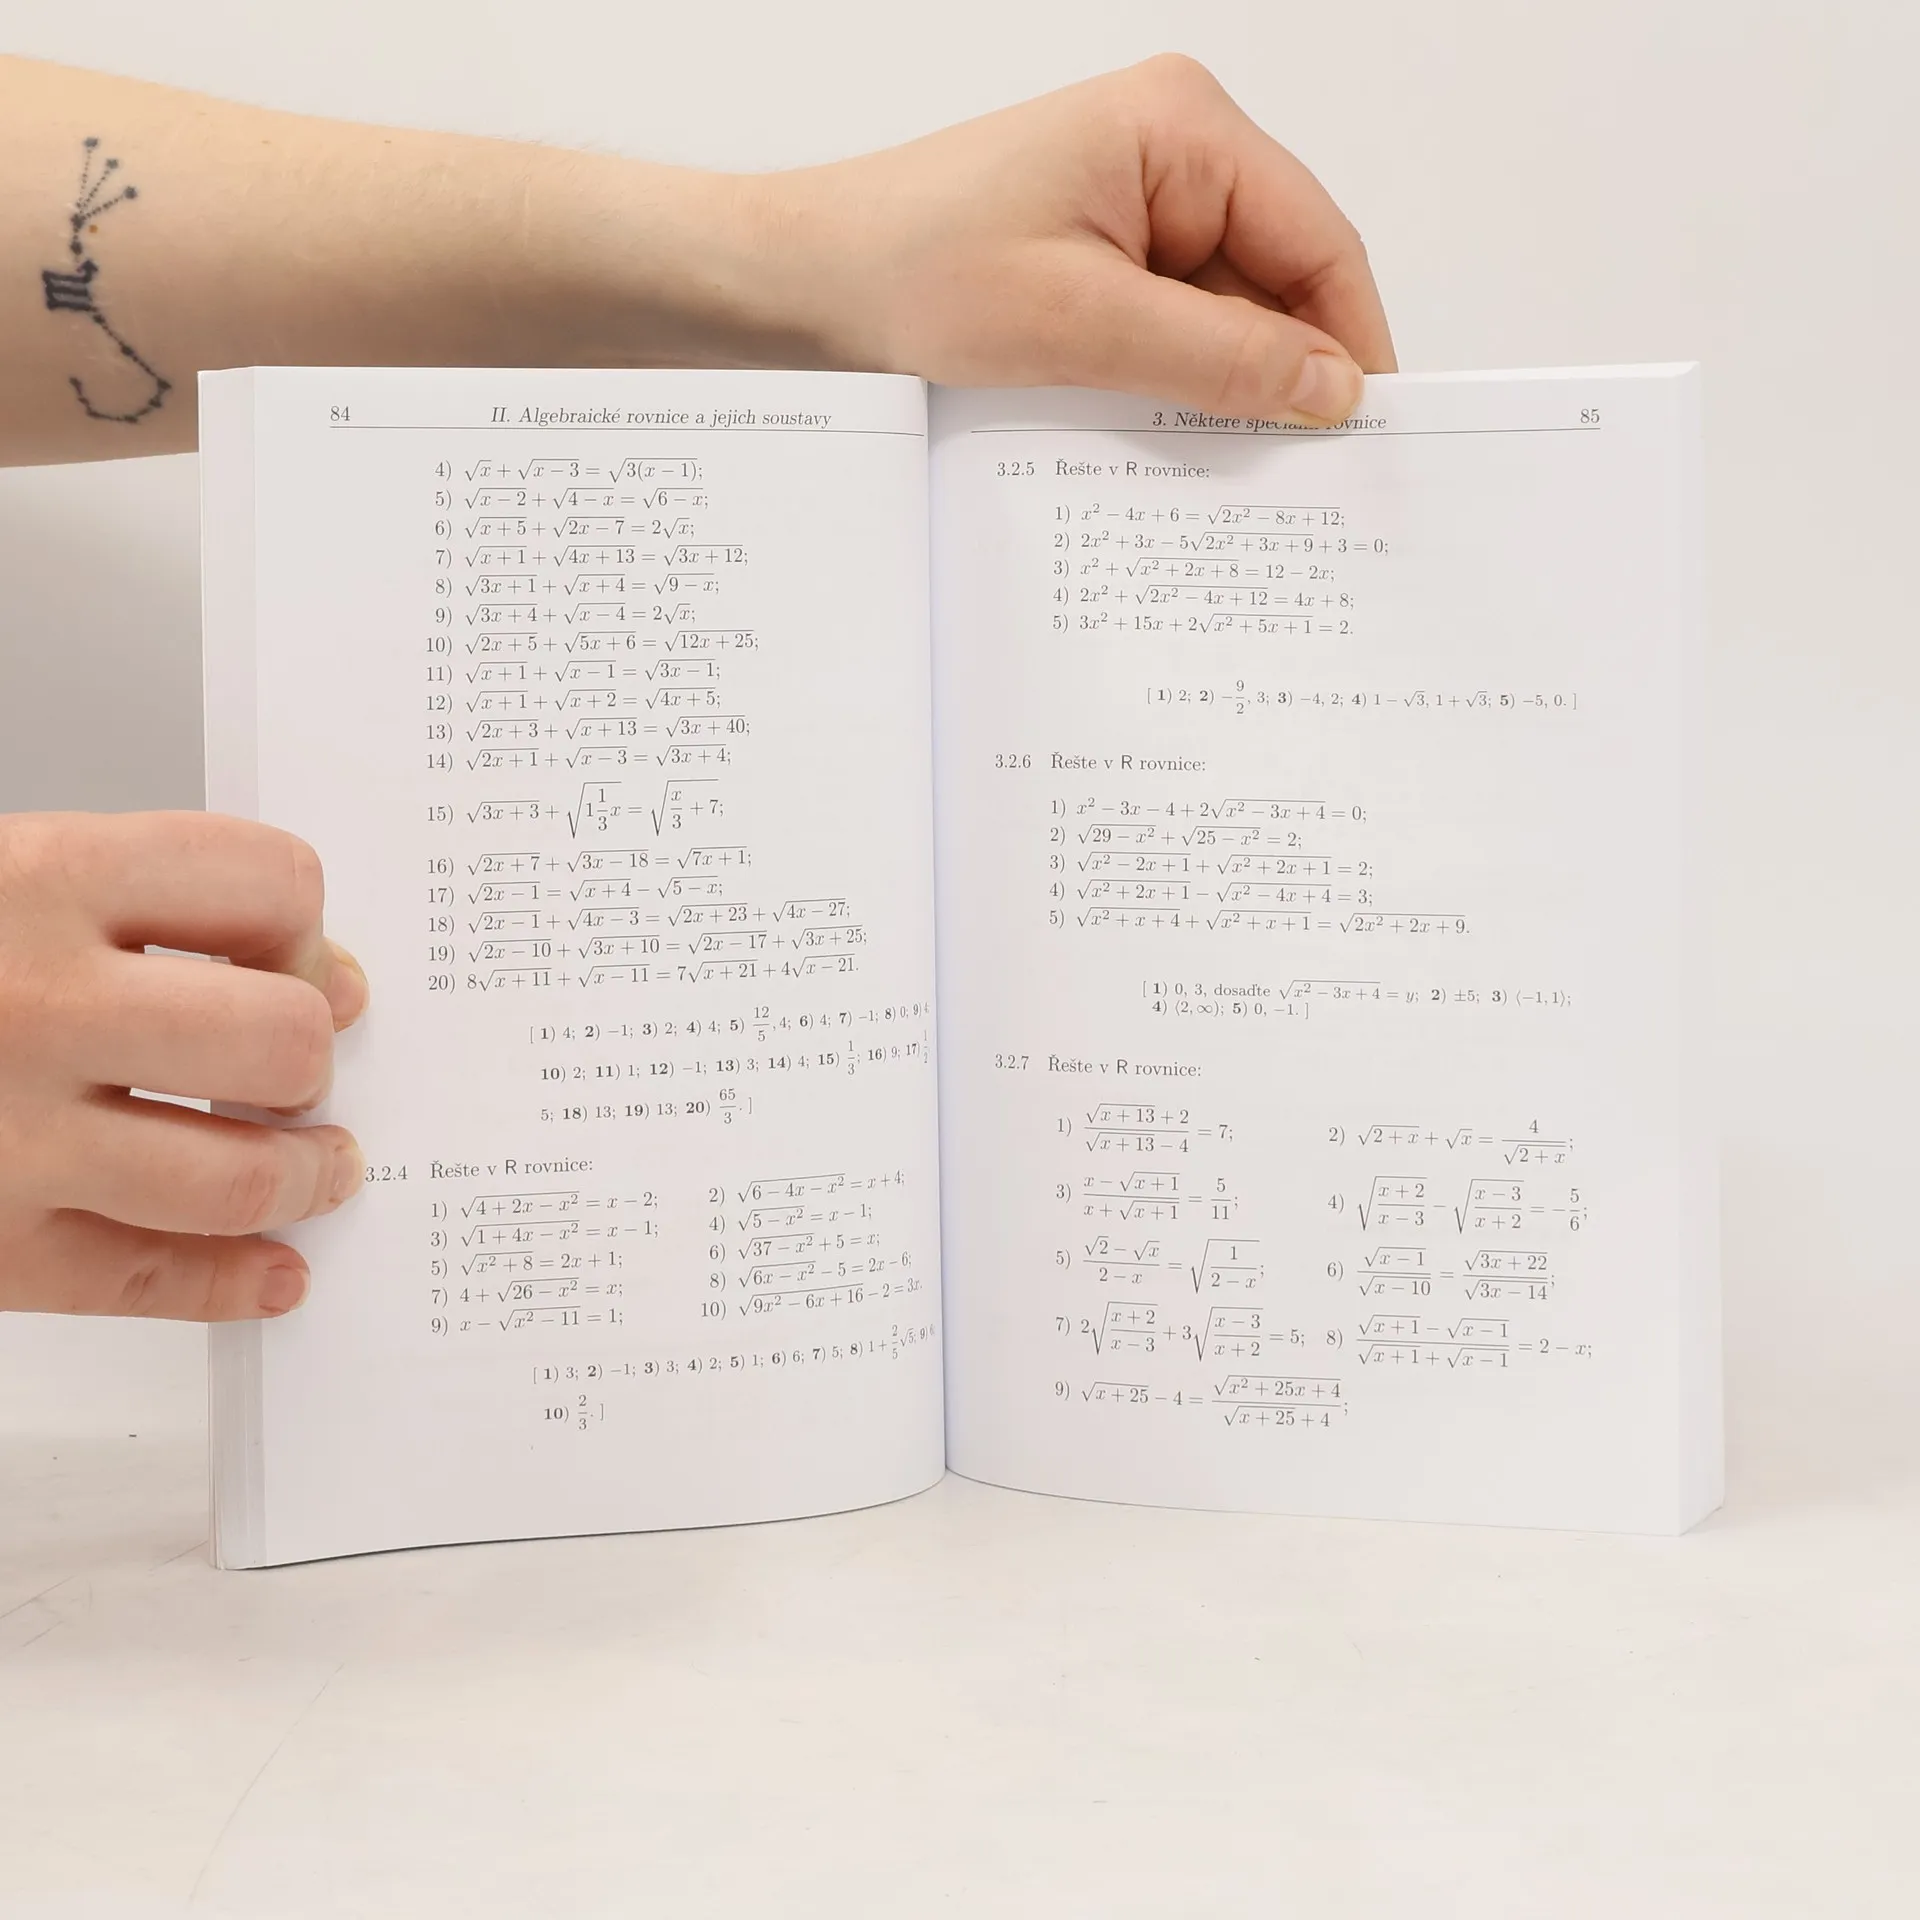 84 II. Algebraické rovnice a jejich soustavy
4) √x + √(x − 3) = √(3(x − 1));
5) √(x − 2) + √(4 − x) = √(6 − x);
6) √(x + 5) + √(2x − 7) = 2√x;
7) √(x + 1) + √(4x + 13) = √(3x + 12);
8) √(3x + 1) + √(x + 4) = √(9 − x);
9) √(3x + 4) + √(x − 4) = 2√x;
10) √(2x + 5) + √(5x + 6) = √(12x + 25);
11) √(x + 1) + √(x − 1) = √(3x − 1);
12) √(x + 1) + √(x + 2) = √(4x + 5);
13) √(2x + 3) + √(x + 13) = √(3x + 40);
14) √(2x + 1) + √(x − 3) = √(3x + 4);
15) √(3x + 3) + √(1 1/3 x) = √(x/3 + 7);
16) √(2x + 7) + √(3x − 18) = √(7x + 1);
17) √(2x − 1) = √(x + 4) − √(5 − x);
18) √(2x − 1) + √(4x − 3) = √(2x + 23) + √(4x − 27);
19) √(2x − 10) + √(3x + 10) = √(2x − 17) + √(3x + 25);
20) 8√(x + 11) + √(x − 11) = 7√(x + 21) + 4√(x − 21).
[ 1) 4; 2) −1; 3) 2; 4) 4; 5) 12/5, 4; 6) 4; 7) −1; 8) 0; 9)
10) 2; 11) 1; 12) −1; 13) 3; 14) 4; 15) 1/3; 16) 9; 17) 1/2
5; 18) 13; 19) 13; 20) 65/3. ]
3.2.4 Řešte v R rovnice:
1) √(4 + 2x − x²) = x − 2; 2) √(6 − 4x − x²) = x + 4;
3) √(1 + 4x − x²) = x − 1; 4) √(5 − x²) = x − 1;
5) √(x² + 8) = 2x + 1; 6) √(37 − x²) + 5 = x;
7) 4 + √(26 − x²) = x; 8) √(6x − x² − 5) = 2x − 6;
9) x − √(x² − 11) = 1; 10) √(9x² − 6x + 16) − 2 = 3x.
[ 1) 3; 2) −1; 3) 3; 4) 2; 5) 1; 6) 6; 7) 5; 8) 1 + 2/5 √5; 9)
10) 2/3. ]
3. Některé rovnice 85
3.2.5 Řešte v R rovnice:
1) x² − 4x + 6 = √(2x² − 8x + 12);
2) 2x² + 3x − 5√(2x² + 3x + 9) + 3 = 0;
3) x² + √(x² + 2x + 8) = 12 − 2x;
4) 2x² + √(2x² − 4x + 12) = 4x + 8;
5) 3x² + 15x + 2√(x² + 5x + 1) = 2.
[ 1) 2; 2) −9/2, 3; 3) −4, 2; 4) 1 − √3, 1 + √3; 5) −5, 0. ]
3.2.6 Řešte v R rovnice:
1) x² − 3x − 4 + 2√(x² − 3x + 4) = 0;
2) √(29 − x²) + √(25 − x²) = 2;
3) √(x² − 2x + 1) + √(x² + 2x + 1) = 2;
4) √(x² + 2x + 1) − √(x² − 4x + 4) = 3;
5) √(x² + x + 4) + √(x² + x + 1) = √(2x² + 2x + 9).
[ 1) 0, 3, dosaďte √(x² − 3x + 4) = y; 2) ±5; 3) ⟨−1, 1⟩;
4) ⟨2, ∞); 5) 0, −1. ]
3.2.7 Řešte v R rovnice:
1) (√(x + 13) + 2)/(√(x + 13) − 4) = 7; 2) √(2 + x) + √x = 4/√(2 + x);
3) (x − √(x + 1))/(x + √(x + 1)) = 5/11; 4) √((x + 2)/(x − 3)) − √((x − 3)/(x + 2)) = −5/6;
5) (√2 − √x)/(2 − x) = √(1/(2 − x)); 6) √(x − 1)/√(x − 10) = √(3x + 22)/√(3x − 14);
7) 2√((x + 2)/(x − 3)) + 3√((x − 3)/(x + 2)) = 5; 8) (√(x + 1) − √(x − 1))/(√(x + 1) + √(x − 1)) = 2 − x;
9) √(x + 25) − 4 = √(x² + 25x + 4)/(√(x + 25) + 4);